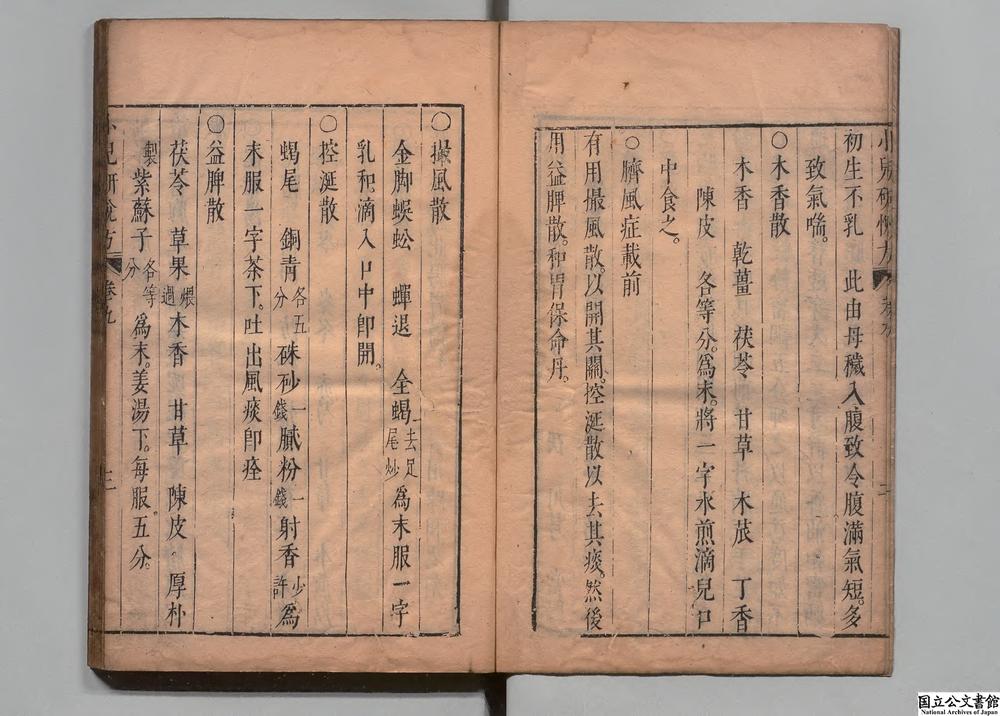 初生不乳 此由母穢入腹致令腹滿氣短。多
致氣喘。
〇木香散
木香 乾薑 茯苓 甘草 木茋 丁香
陳皮 各等分。爲末。將一字水煎滴兒口
中食之。
〇臍風症載前
有用撮風散。以開其關。控涎散以去其痰。然後
用益脾散。和胃保命丹。
〇撮風散
金脚蜈蚣 蟬退 全蝎去足尾炒 爲末服一字
乳和滴入口中卽開。
〇控涎散
蝎尾 銅青各五分 硃砂一錢 膩粉一錢 射香少許 爲
末服一字茶下。吐出風痰卽痊
〇益脾散
茯苓 草果煨過 木香 甘草 陳皮 厚朴
製 紫蘇子各等分 爲末。姜湯下。每服五分。
小兒研悅方 卷九 三
国立公文書館
National Archives of Japan